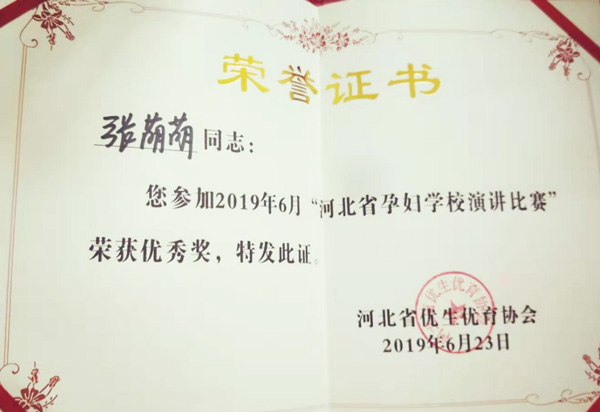 荣誉证书
张萌萌同志：
您参加2019年6月“河北省孕妇学校演讲比赛”
荣获优秀奖，特发此证。
河北省优生优育协会
2019年6月23日
河北省优生优育协会